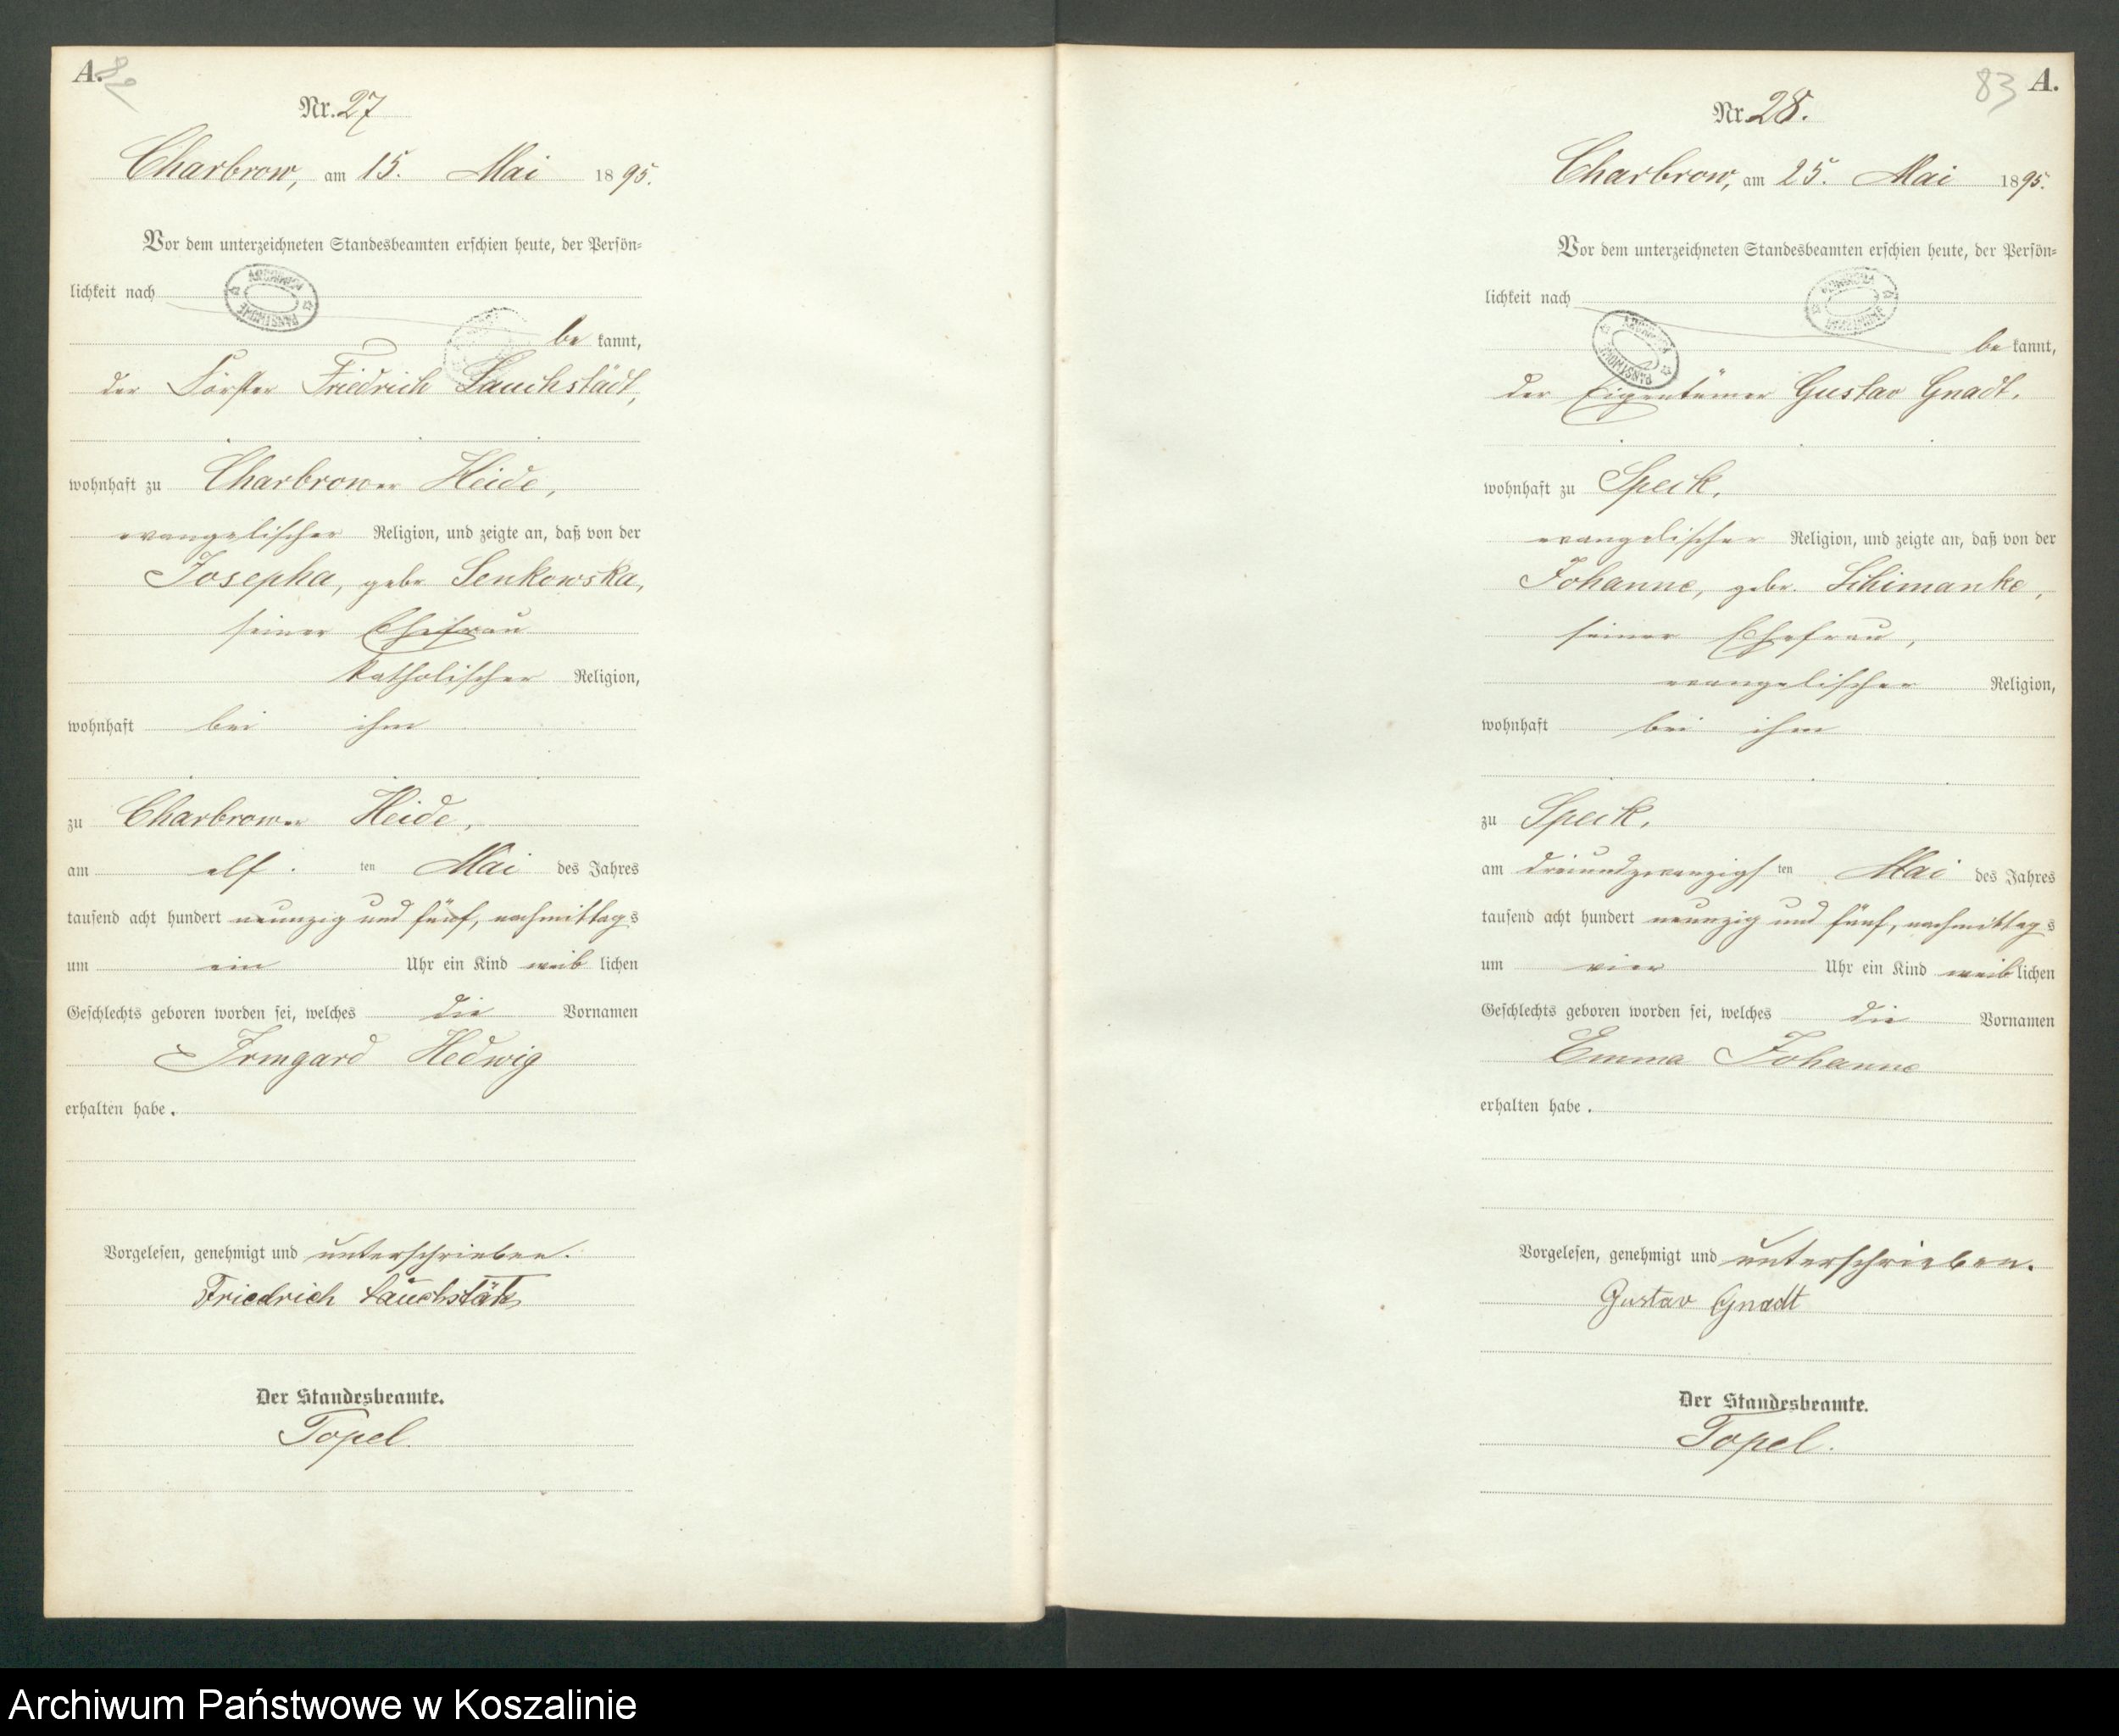 A.
82
Nr. 27
Charbrow, am 15. Mai 1895.
Vor dem unterzeichneten Standesbeamten erschien heute, der Persön-
lichkeit nach
be kannt,
der Förster Friedrich Lauchstädt,
wohnhaft zu Charbrower Heide,
evangelischer Religion, und zeigte an, daß von der
Josepha, geb. Senkowska,
seiner Ehefrau
katholischer Religion,
wohnhaft bei ihm
zu Charbrower Heide,
am elf ten Mai des Jahres
tausend acht hundert neunzig und fünf, nachmittags
um ein Uhr ein Kind weib lichen
Geschlechts geboren worden sei, welches die Vornamen
Irmgard Hedwig
erhalten habe.
Vorgelesen, genehmigt und unterschrieben.
Friedrich Lauchstädt
Der Standesbeamte.
Topel.
83 A.
Nr. 28.
Charbrow, am 25. Mai 1895.
Vor dem unterzeichneten Standesbeamten erschien heute, der Persön-
lichkeit nach
be kannt,
der Eigentümer Gustav Gnadt,
wohnhaft zu Speck,
evangelischer Religion, und zeigte an, daß von der
Johanne, geb. Schimanke,
seiner Ehefrau,
evangelischer Religion,
wohnhaft bei ihm
zu Speck,
am dreiundzwanzigs ten Mai des Jahres
tausend acht hundert neunzig und fünf, nachmittags
um vier Uhr ein Kind weib lichen
Geschlechts geboren worden sei, welches die Vornamen
Emma Johanne
erhalten habe.
Vorgelesen, genehmigt und unterschrieben.
Gustav Gnadt
Der Standesbeamte.
Topel.
Archiwum Państwowe w Koszalinie